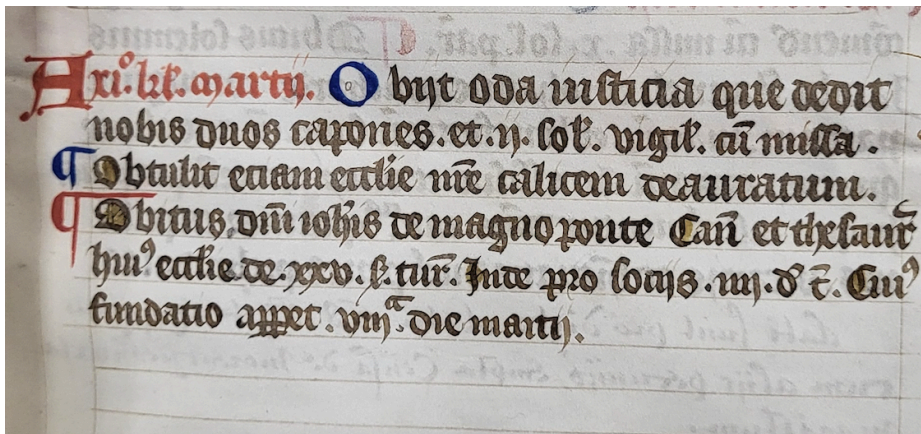 A xi͛º. kl̄. martij. Obijt oda iusticia que dedit
nobis duos capones. et. ij. sol̄. vigil̄. cū missa.
¶ Obtulit etiam ecclīe nr̄e calicem deauratum.
¶ Obitus dn̄i ioh̄is de magno ponte Can̄ et thesaur̄
huiꝰ ecclīe. de. xxv. s̄. tur̄. Inde pro socijs. iiij. d̄ t̄. Cuiꝰ
fundatio appet. viijᵃ. die martij.